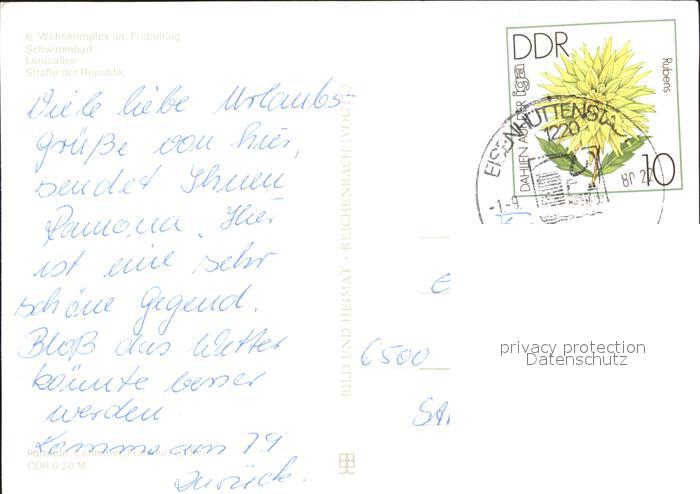 6. Wohnkomplex am Fröbelring
Schwimmbad
Leninallee
Straße der Republik
Viele liebe Urlaubs-
grüße von hier,
sendet Ihnen
Ramona. Hier
ist eine sehr
schöne Gegend.
Bloß das Wetter
könnte besser
werden.
Komme am 7.9.
zurück.
DDR 0,20 M
BILD UND HEIMAT · REICHENBACH (VOGTL)
DDR
DAHLIEN AUF DER iga
Rubens
10
EISENHÜTTENSTA
1220
-1-9.
80-22
6500
privacy protection
Datenschutz